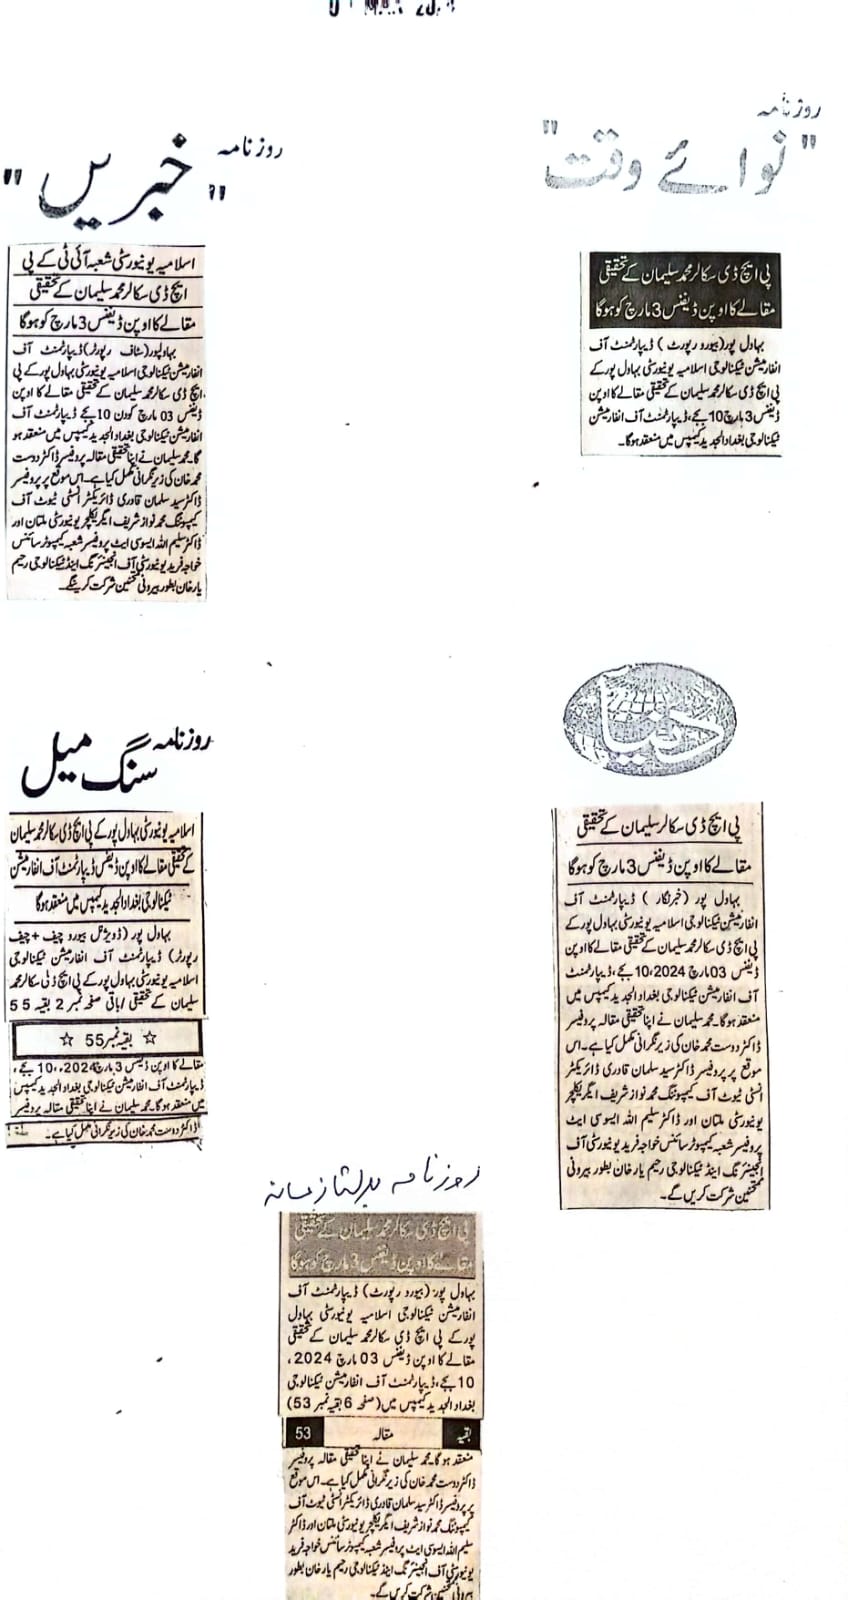 روزنامہ
"نوائے وقت"
پی ایچ ڈی سکالر محمد سلیمان کے تحقیقی
مقالے کا اوپن ڈیفنس 3 مارچ کو ہوگا
بہاول پور (بیورو رپورٹ) ڈیپارٹمنٹ آف
انفارمیشن ٹیکنالوجی اسلامیہ یونیورسٹی بہاول پور کے
پی ایچ ڈی سکالر محمد سلیمان کے تحقیقی مقالے کا اوپن
ڈیفنس 3 مارچ 10 بجے، ڈیپارٹمنٹ آف انفارمیشن
ٹیکنالوجی بغداد الجدید کیمپس میں منعقد ہوگا۔
روزنامہ
"خبریں"
اسلامیہ یونیورسٹی شعبہ آئی ٹی کے پی
ایچ ڈی سکالر محمد سلیمان کے تحقیقی
مقالے کا اوپن ڈیفنس 3 مارچ کو ہوگا
بہاولپور (سٹاف رپورٹر) ڈیپارٹمنٹ آف
انفارمیشن ٹیکنالوجی اسلامیہ یونیورسٹی بہاول پور کے پی
ایچ ڈی سکالر محمد سلیمان کے تحقیقی مقالے کا اوپن
ڈیفنس 03 مارچ کو دن 10 بجے ڈیپارٹمنٹ آف
انفارمیشن ٹیکنالوجی بغداد الجدید کیمپس میں منعقد ہو
گا۔ محمد سلیمان نے اپنا تحقیقی مقالہ پروفیسر ڈاکٹر دوست
محمد خان کی زیر نگرانی مکمل کیا ہے۔ اس موقع پر پروفیسر
ڈاکٹر سید سلمان قادری ڈائریکٹر انسٹی ٹیوٹ آف
کمپیوٹنگ محمد نواز شریف ایگریکلچر یونیورسٹی ملتان اور
ڈاکٹر سلیم اللہ ایسوسی ایٹ پروفیسر شعبہ کمپیوٹر سائنس
خواجہ فرید یونیورسٹی آف انجینئرنگ اینڈ ٹیکنالوجی رحیم
یار خان بطور بیرونی ممتحنین شرکت کرینگے۔
دنیا
پی ایچ ڈی سکالر سلیمان کے تحقیقی
مقالے کا اوپن ڈیفنس 3 مارچ کو ہوگا
بہاول پور (خبرنگار) ڈیپارٹمنٹ آف
انفارمیشن ٹیکنالوجی اسلامیہ یونیورسٹی بہاول پور کے
پی ایچ ڈی سکالر محمد سلیمان کے تحقیقی مقالے کا اوپن
ڈیفنس 03 مارچ 2024، 10 بجے، ڈیپارٹمنٹ
آف انفارمیشن ٹیکنالوجی بغداد الجدید کیمپس میں
منعقد ہوگا۔ محمد سلیمان نے اپنا تحقیقی مقالہ پروفیسر
ڈاکٹر دوست محمد خان کی زیر نگرانی مکمل کیا ہے۔ اس
موقع پر پروفیسر ڈاکٹر سید سلمان قادری ڈائریکٹر
انسٹی ٹیوٹ آف کمپیوٹنگ محمد نواز شریف ایگریکلچر
یونیورسٹی ملتان اور ڈاکٹر سلیم اللہ ایسوسی ایٹ
پروفیسر شعبہ کمپیوٹر سائنس خواجہ فرید یونیورسٹی آف
انجینئرنگ اینڈ ٹیکنالوجی رحیم یار خان بطور بیرونی
ممتحنین شرکت کریں گے۔
روزنامہ
سنگ میل
اسلامیہ یونیورسٹی بہاول پور کے پی ایچ ڈی سکالر محمد سلیمان
کے تحقیقی مقالے کا اوپن ڈیفنس ڈیپارٹمنٹ آف انفارمیشن
ٹیکنالوجی بغداد الجدید کیمپس میں منعقد ہوگا
بہاول پور (ڈویژنل بیورو چیف + چیف
رپورٹر) ڈیپارٹمنٹ آف انفارمیشن ٹیکنالوجی
اسلامیہ یونیورسٹی بہاول پور کے پی ایچ ڈی سکالر محمد
سلیمان کے تحقیقی / باقی صفحہ نمبر 2 بقیہ 55
☆ بقیہ نمبر 55 ☆
مقالے کا اوپن ڈیفنس 3 مارچ 2024،، 10 بجے،
ڈیپارٹمنٹ آف انفارمیشن ٹیکنالوجی بغداد الجدید کیمپس
میں منعقد ہوگا۔ محمد سلیمان نے اپنا تحقیقی مقالہ پروفیسر
ڈاکٹر دوست محمد خان کی زیر نگرانی مکمل کیا ہے۔
روزنامہ
پی ایچ ڈی سکالر محمد سلیمان کے تحقیقی
مقالے کا اوپن ڈیفنس 3 مارچ کو ہوگا
بہاول پور (بیورو رپورٹ) ڈیپارٹمنٹ آف
انفارمیشن ٹیکنالوجی اسلامیہ یونیورسٹی بہاول
پور کے پی ایچ ڈی سکالر محمد سلیمان کے تحقیقی
مقالے کا اوپن ڈیفنس 03 مارچ 2024،
10 بجے، ڈیپارٹمنٹ آف انفارمیشن ٹیکنالوجی
بغداد الجدید کیمپس میں (صفحہ 6 بقیہ نمبر 53)
بقیہ مقالہ 53
منعقد ہوگا۔ محمد سلیمان نے اپنا تحقیقی مقالہ پروفیسر
ڈاکٹر دوست محمد خان کی زیر نگرانی مکمل کیا ہے۔ اس موقع
پر پروفیسر ڈاکٹر سید سلمان قادری ڈائریکٹر انسٹی ٹیوٹ آف
کمپیوٹنگ محمد نواز شریف ایگریکلچر یونیورسٹی ملتان اور ڈاکٹر
سلیم اللہ ایسوسی ایٹ پروفیسر شعبہ کمپیوٹر سائنس خواجہ فرید
یونیورسٹی آف انجینئرنگ اینڈ ٹیکنالوجی رحیم یار خان بطور
بیرونی ممتحنین شرکت کریں گے۔